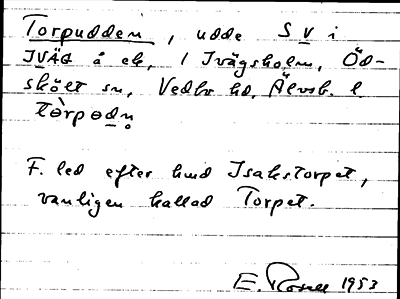 Torpudden, udde S v i
IVÄG å ek, 1 Ivägsholm, Öd-
skölt sn, Vedbo hd, Älvsb. l
tòrpødn̥
F. led efter hmd Isakstorpet,
vanligen kallad Torpet.
E. Rosell 1953